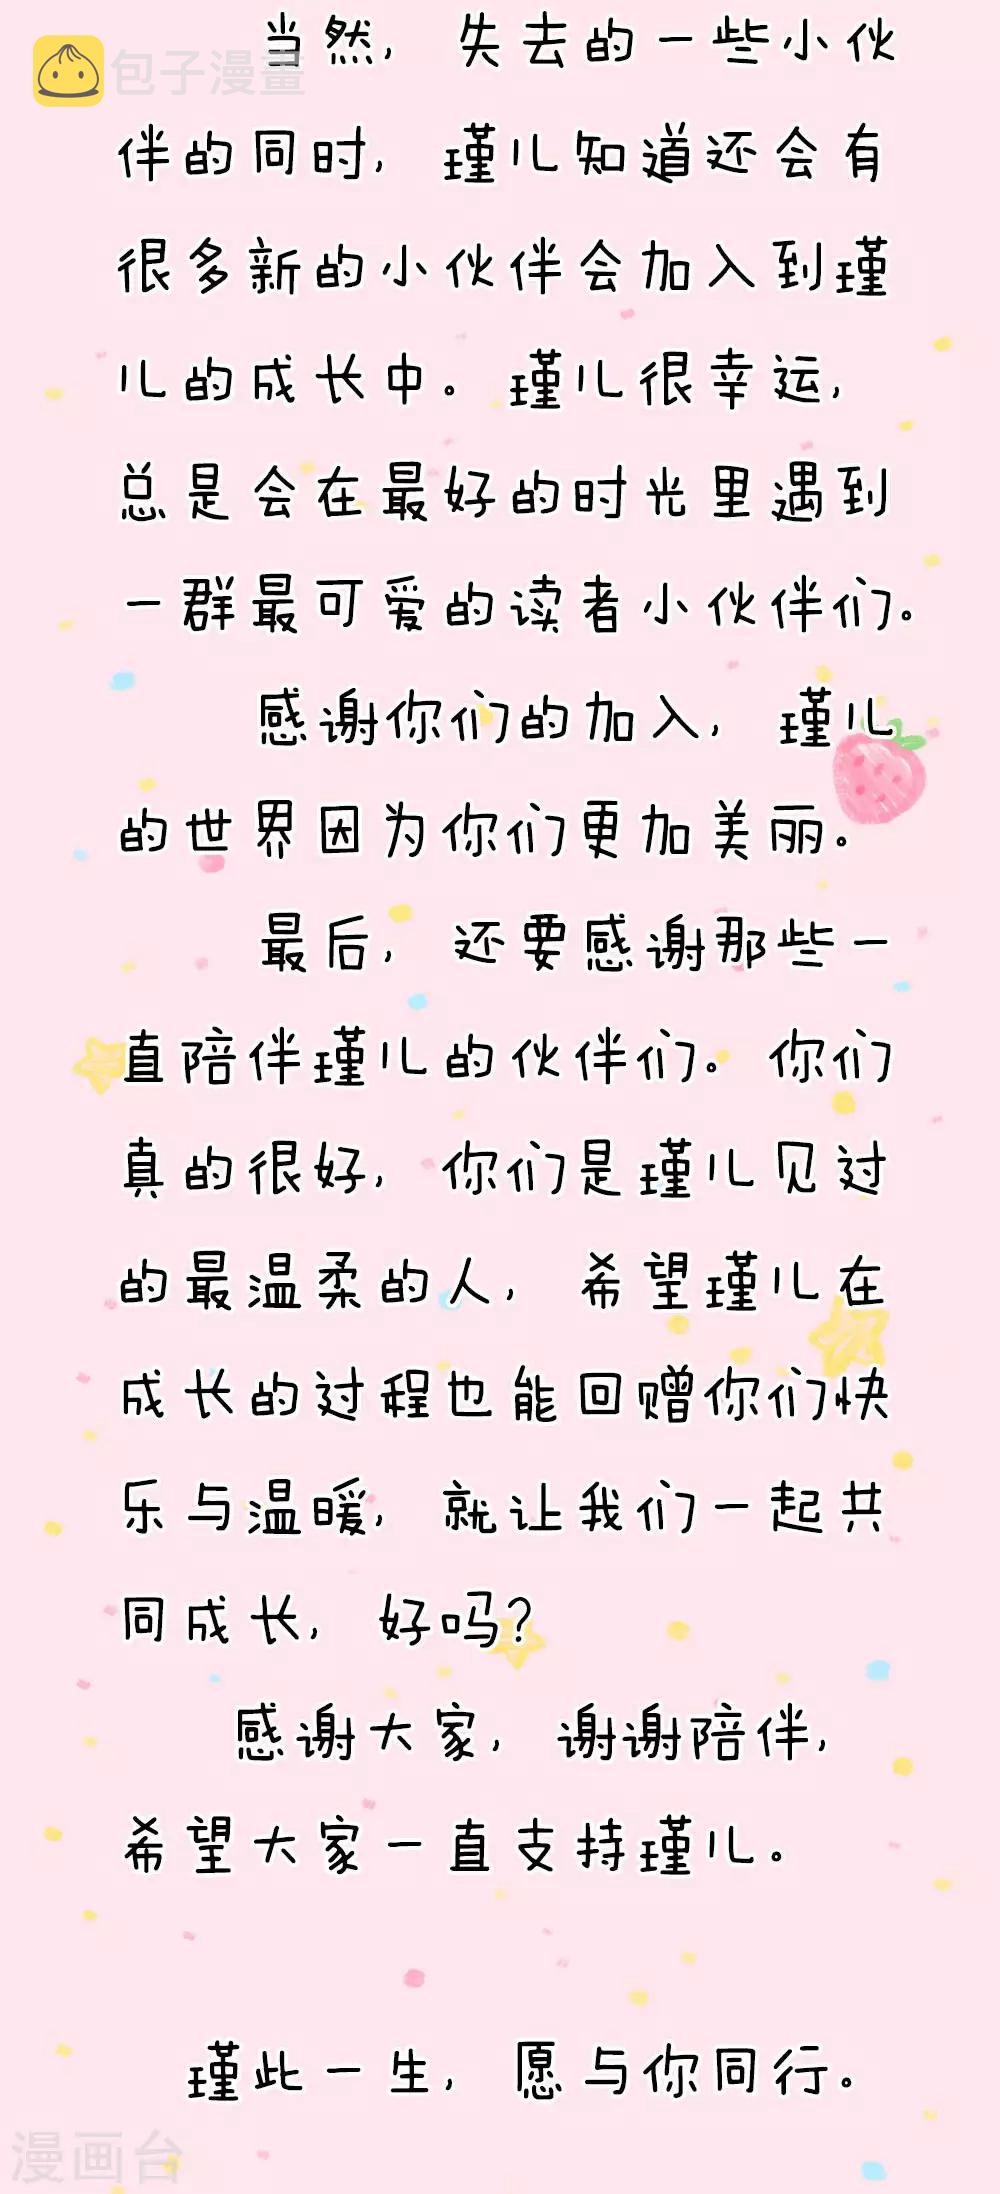 当然，失去的一些小伙
包子漫畫
伴的同时，瑾儿知道还会有
很多新的小伙伴会加入到瑾
儿的成长中。瑾儿很幸运，
总是会在最好的时光里遇到
一群最可爱的读者小伙伴们。
感谢你们的加入，瑾儿
的世界因为你们更加美丽。
最后，还要感谢那些一
直陪伴瑾儿的伙伴们。你们
真的很好，你们是瑾儿见过
的最温柔的人，希望瑾儿在
成长的过程也能回赠你们快
乐与温暖，就让我们一起共
同成长，好吗？
感谢大家，谢谢陪伴，
希望大家一直支持瑾儿。
瑾此一生，愿与你同行。
漫画台